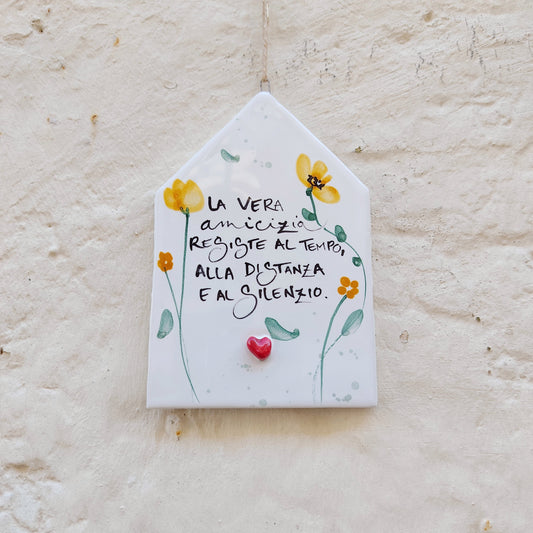 LA VERA
amicizia
RESISTE AL TEMPO,
ALLA DISTANZA
E AL SILENZIO.